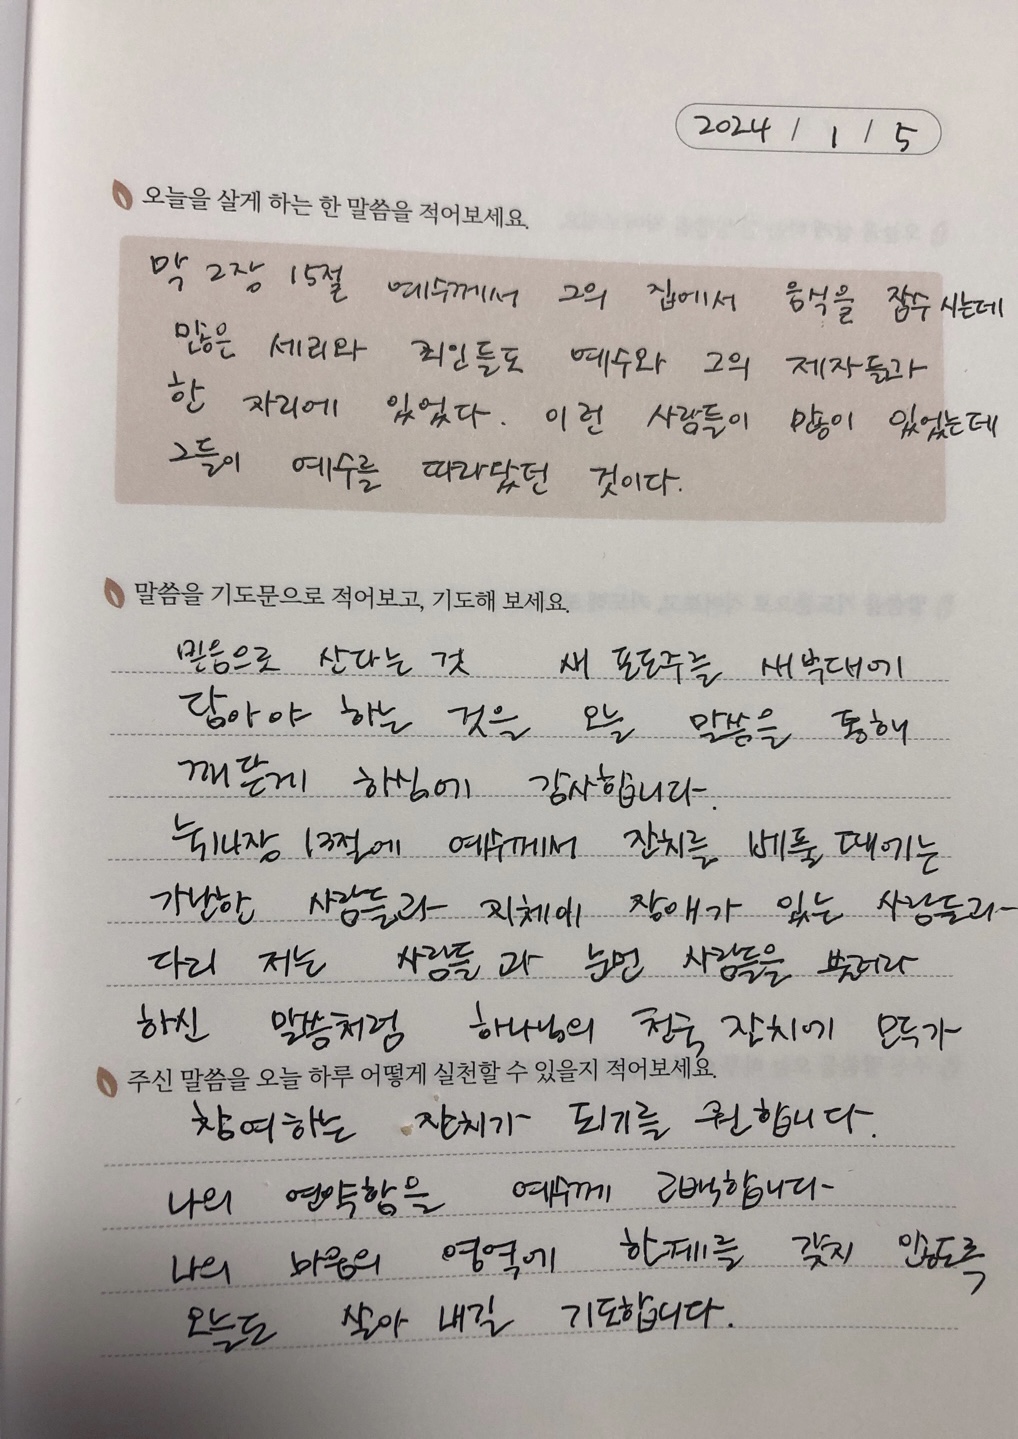 2024 / 1 / 5
오늘을 살게 하는 한 말씀을 적어보세요.
막 2장 15절 예수께서 그의 집에서 음식을 잡수시는데
많은 세리와 죄인들도 예수와 그의 제자들과
한 자리에 있었다. 이런 사람들이 많이 있었는데
그들이 예수를 따라왔던 것이다.
말씀을 기도문으로 적어보고, 기도해 보세요.
믿음으로 산다는 것 새 포도주를 새부대에
담아야 하는 것을 오늘 말씀을 통해
깨닫게 하심에 감사합니다.
눅14장 13절에 예수께서 잔치를 베풀 때에는
가난한 사람들과 지체에 장애가 있는 사람들과
다리 저는 사람들과 눈먼 사람들을 불러라
하신 말씀처럼 하나님의 천국 잔치에 모두가
주신 말씀을 오늘 하루 어떻게 실천할 수 있을지 적어보세요.
참여하는 잔치가 되기를 원합니다.
나의 연약함을 예수께 고백합니다
나의 마음의 영역에 한계를 갖지 않도록
오늘도 살아 내길 기도합니다.